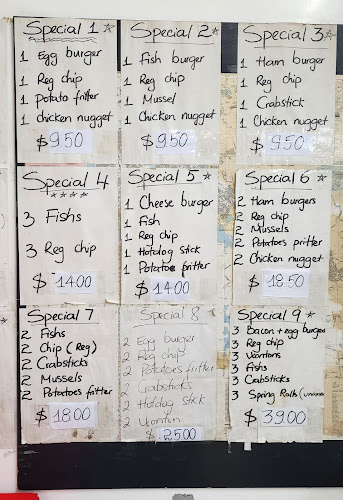 Special 1 *
1 Egg burger
1 Reg chip
1 Potato fritter
1 chicken nugget
$9.50
Special 2 *
1 Fish burger
1 Reg chip
1 Mussel
1 Chicken nugget
$9.50
Special 3 *
1 Ham burger
1 Reg chip
1 Crabstick
1 Chicken nugget
$9.50
Special 4
****
3 Fishs
3 Reg chip
$14.00
Special 5 *
1 Cheese burger
1 Fish
1 Reg chip
1 Hotdog stick
1 Potatoe fritter
$14.00
Special 6 *
2 Ham burgers
2 Reg chip
2 Mussels
2 Potatoes pritter
2 Chicken nugget
$18.50
Special 7
2 Fishs
2 Chip (Reg)
2 Crabsticks
2 Mussels
2 Potatoes fritter
$18.00
Special 8
2 Egg burger
2 Reg chip
2 Potatoes fritter
2 Crabsticks
2 Hotdog stick
2 Wonton
$25.00
Special 9 *
3 Bacon + egg burgers
3 Reg chip
3 Wontons
3 Fishs
3 Crabsticks
3 Spring Rolls
$39.00